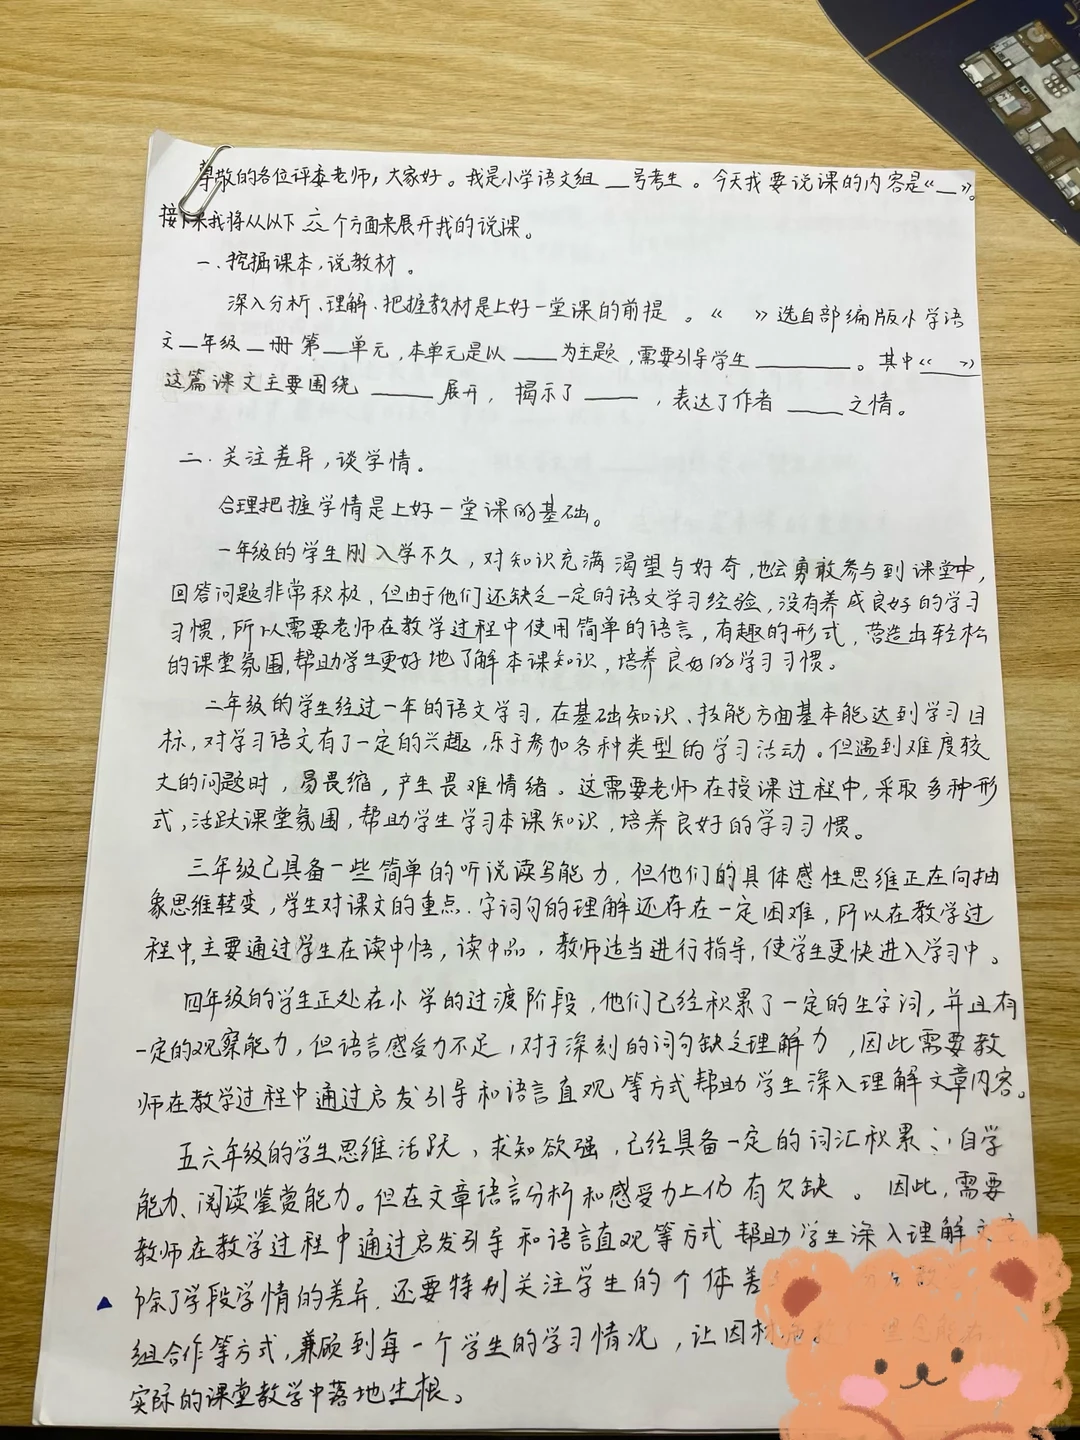 尊敬的各位评委老师，大家好。我是小学语文组 __号考生。今天我要说课的内容是“__”。
接下来我将从以下 六 个方面来展开我的说课。
一.挖掘课本，说教材。
深入分析、理解、把握教材是上好一堂课的前提。《 》选自部编版小学语
文__年级__册 第__单元，本单元是以____为主题，需要引导学生________。其中《 》
这篇课文主要围绕____展开，揭示了____，表达了作者____之情。
二.关注差异，谈学情。
合理把握学情是上好一堂课的基础。
一年级的学生刚入学不久，对知识充满渴望与好奇，也会勇敢参与到课堂中，
回答问题非常积极，但由于他们还缺乏一定的语文学习经验，没有养成良好的学习
习惯，所以需要老师在教学过程中使用简单的语言，有趣的形式，营造出轻松
的课堂氛围，帮助学生更好地了解本课知识，培养良好的学习习惯。
二年级的学生经过一年的语文学习，在基础知识、技能方面基本能达到学习目
标，对学习语文有了一定的兴趣，乐于参加各种类型的学习活动。但遇到难度较
大的问题时，易畏缩，产生畏难情绪。这需要老师在授课过程中，采取多种形
式，活跃课堂氛围，帮助学生学习本课知识，培养良好的学习习惯。
三年级已具备一些简单的听说读写能力，但他们的具体感性思维正在向抽
象思维转变，学生对课文的重点、字词句的理解还存在一定困难，所以在教学过
程中，主要通过学生在读中悟，读中品，教师适当进行指导，使学生更快进入学习中。
四年级的学生正处在小学的过渡阶段，他们已经积累了一定的生字词，并且有
一定的观察能力，但语言感受力不足，对于深刻的词句缺乏理解力，因此需要教
师在教学过程中通过启发引导和语言直观等方式帮助学生深入理解文章内容。
五六年级的学生思维活跃，求知欲强，已经具备一定的词汇积累、自学
能力、阅读鉴赏能力。但在文章语言分析和感受力上仍有欠缺。因此，需要
教师在教学过程中通过启发引导和语言直观等方式帮助学生深入理解文
除了学段学情的差异，还要特别关注学生的个体差
组合作等方式，兼顾到每一个学生的学习情况，让因材
实际的课堂教学中落地生根。